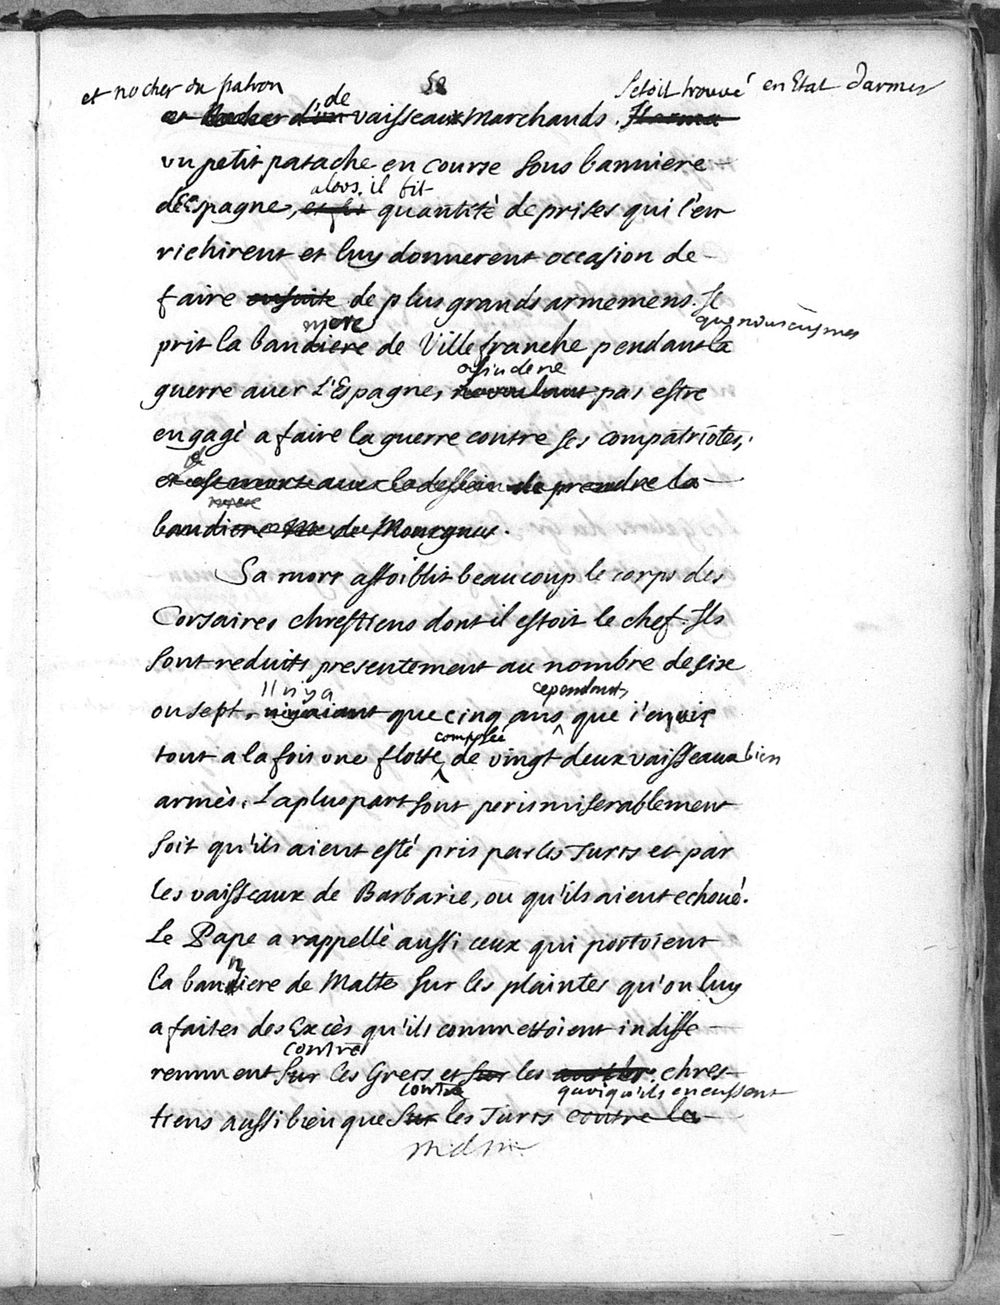 et nocher du patron de se s'etoit trouvé en Etat d'armer
et Nocher d'un vaisseaux Marchands. Il arma
vn petit patache en course sous banniere
d'Espagne, alors il fit et fit quantité de prises qui l'en
richirent et luy donnerent occasion de
faire ensuite de plus grands armemens. Il
prit la bandiere de Ville franche pendant la que nous eusmes
guerre avec l'Espagne, afin de ne ne voulant pas estre
engagé a faire la guerre contre ses compatriotes,
et est mort avec le dessein de prendre la
bandiere de Mourgues.
Sa mort affoiblit beaucoup le corps des
Corsaires chrestiens dont il estoit le chef. Ils
sont reduits presentement au nombre de six
ou sept. Il n'y a n'y aiant que cinq ans cependant, que i'en vis
tout a la fois une flotte composée de vingt deux vaisseaux bien
armés. La pluspart sont peris miserablement
soit qu'ils aient esté pris par les Turcs et par
les vaisseaux de Barbarie, ou qu'ils aient echoué.
Le Pape a rappellé aussi ceux qui portoient
la banniere de Malte sur les plaintes qu'on luy
a faites des Excès qu'ils commettoient indiffe
remment contre sur les Grecs et sur les chres
tiens aussi bien que contre sur les Turcs quoiqu'ils en eussent contre la